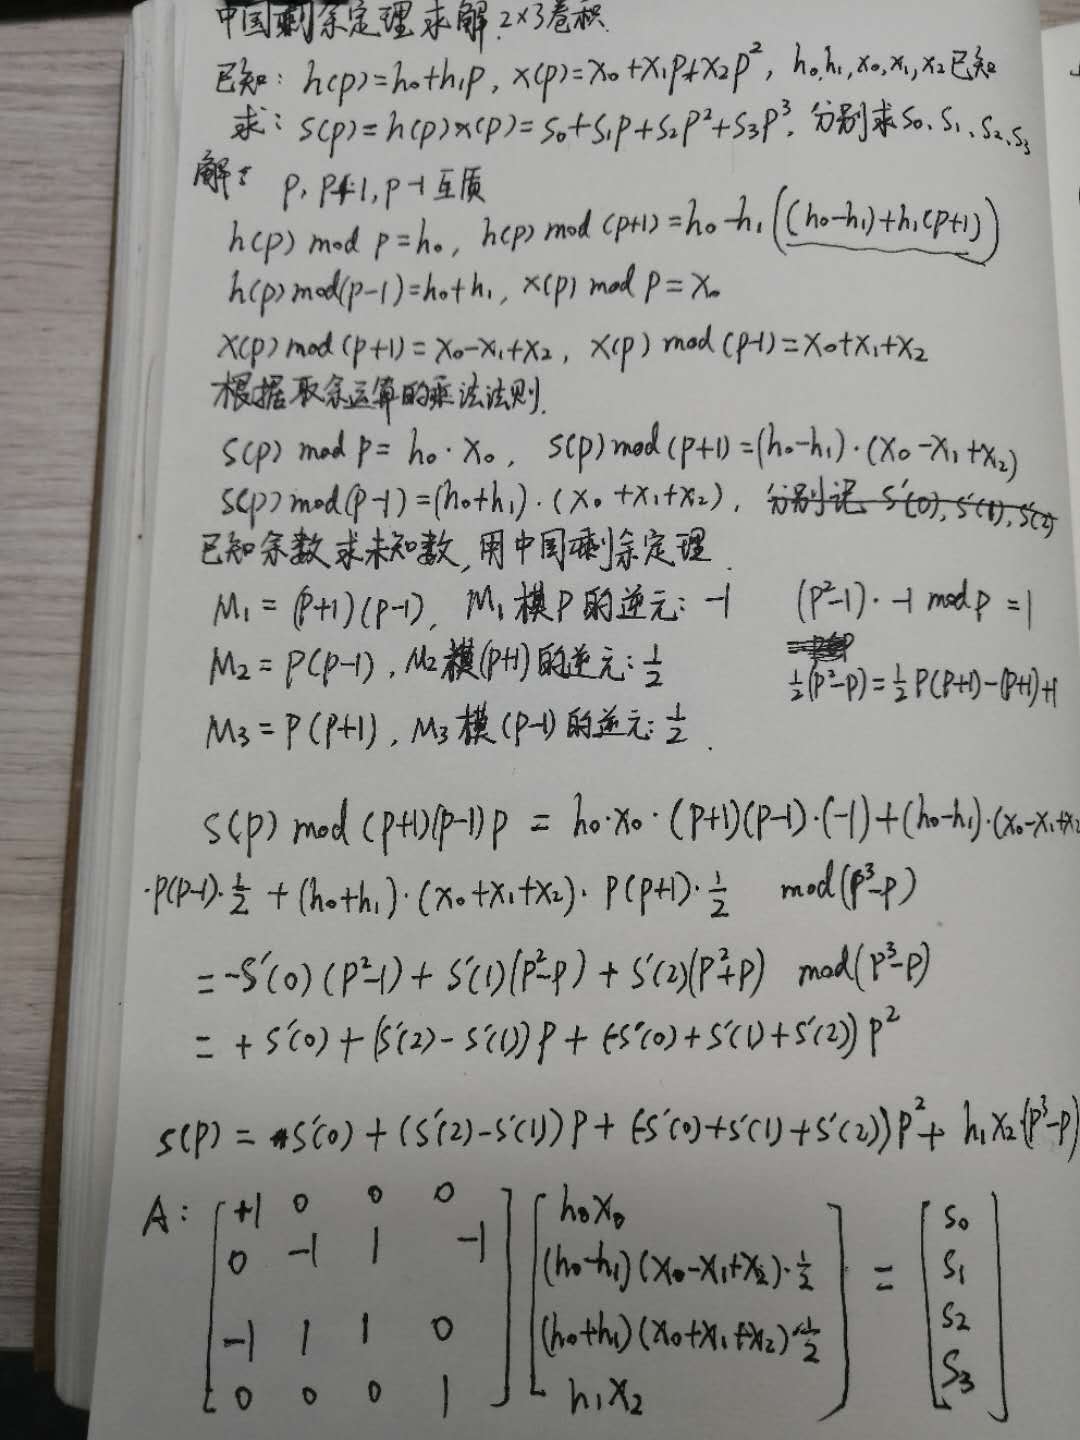 中国剩余定理求解 2×3卷积
已知: h(p)=h₀+h₁p, x(p)=x₀+x₁p+x₂p², h₀,h₁,x₀,x₁,x₂已知
求: s(p)=h(p)x(p)=s₀+s₁p+s₂p²+s₃p³, 分别求s₀、s₁、s₂、s₃
解: p, p+1, p-1互质
h(p) mod p=h₀, h(p) mod (p+1)=h₀-h₁((h₀-h₁)+h₁(p+1))
h(p)mod(p-1)=h₀+h₁, x(p) mod p=x₀
x(p)mod(p+1)=x₀-x₁+x₂, x(p) mod(p-1)=x₀+x₁+x₂
根据取余运算的乘法法则.
s(p) mod p= h₀·x₀, s(p)mod(p+1)=(h₀-h₁)·(x₀-x₁+x₂)
s(p)mod(p-1)=(h₀+h₁)·(x₀+x₁+x₂), 分别记 s′(0), s′(1), s′(2)
已知余数求未知数,用中国剩余定理.
M₁=(p+1)(p-1), M₁模p的逆元: -1 (p²-1)·-1 mod p=1
M₂=p(p-1), M₂模(p+1)的逆元: ½ ½(p²-p)=½p(p+1)-(p+1)+1
M₃=p(p+1), M₃模(p-1)的逆元: ½.
s(p) mod (p+1)(p-1)p = h₀·x₀·(p+1)(p-1)·(-1)+(h₀-h₁)·(x₀-x₁+x₂
·p(p-1)·½+(h₀+h₁)·(x₀+x₁+x₂)·p(p+1)·½ mod(p³-p)
=-s′(0)(p²-1)+s′(1)(p²-p)+s′(2)(p²+p) mod(p³-p)
=+s′(0)+(s′(2)-s′(1))p+(-s′(0)+s′(1)+s′(2))p²
s(p)=s′(0)+(s′(2)-s′(1))p+(-s′(0)+s′(1)+s′(2))p²+h₁x₂(p³-p)
A: +1 0 0 0 h₀x₀ s₀
0 -1 1 -1 (h₀-h₁)(x₀-x₁+x₂)·½ = s₁
-1 1 1 0 (h₀+h₁)(x₀+x₁+x₂)·½ s₂
0 0 0 1 h₁x₂ s₃